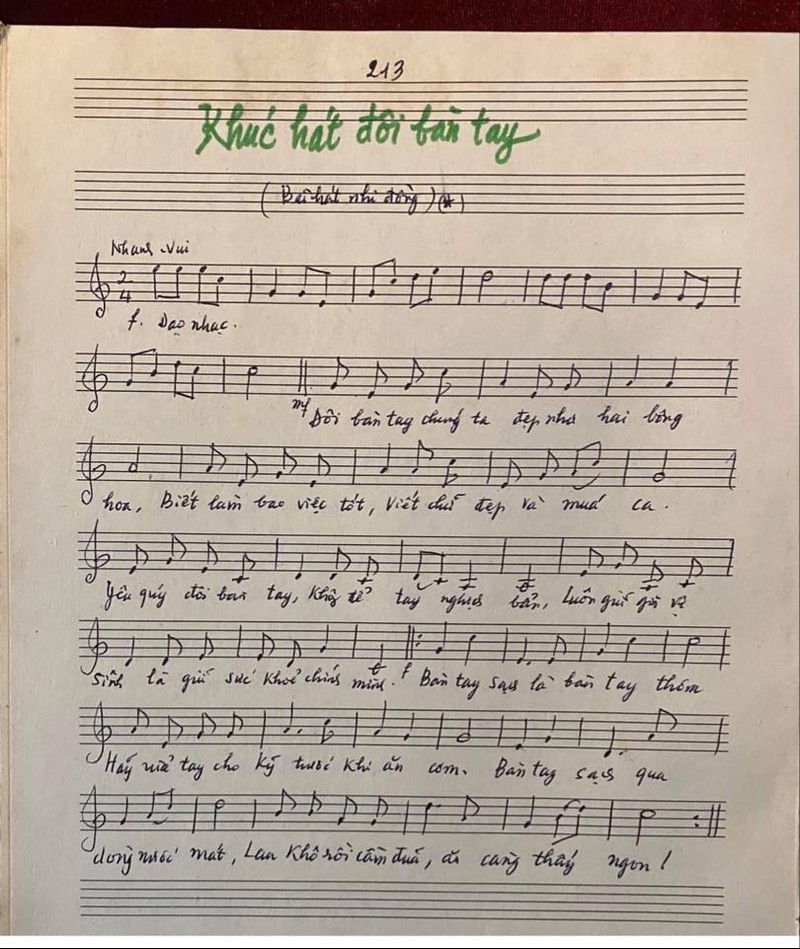 213
Khúc hát đôi bàn tay
(Bài hát nhi đồng) (*)
Nhanh - Vui
2
4
f. Dạo nhạc.
mf Đôi bàn tay chúng ta đẹp như hai bông
hoa, Biết làm bao việc tốt, Viết chữ đẹp và múa ca.
Yêu quý đôi bàn tay, Không để tay nghịch bẩn, Luôn giữ gìn vệ
sinh là giữ sức khoẻ chính mình. f Bàn tay sạch là bàn tay thơm
Hãy rửa tay cho kỹ trước khi ăn cơm. Bàn tay sạch qua
dòng nước mát, Lau khô rồi cầm đũa, ăn càng thấy ngon!